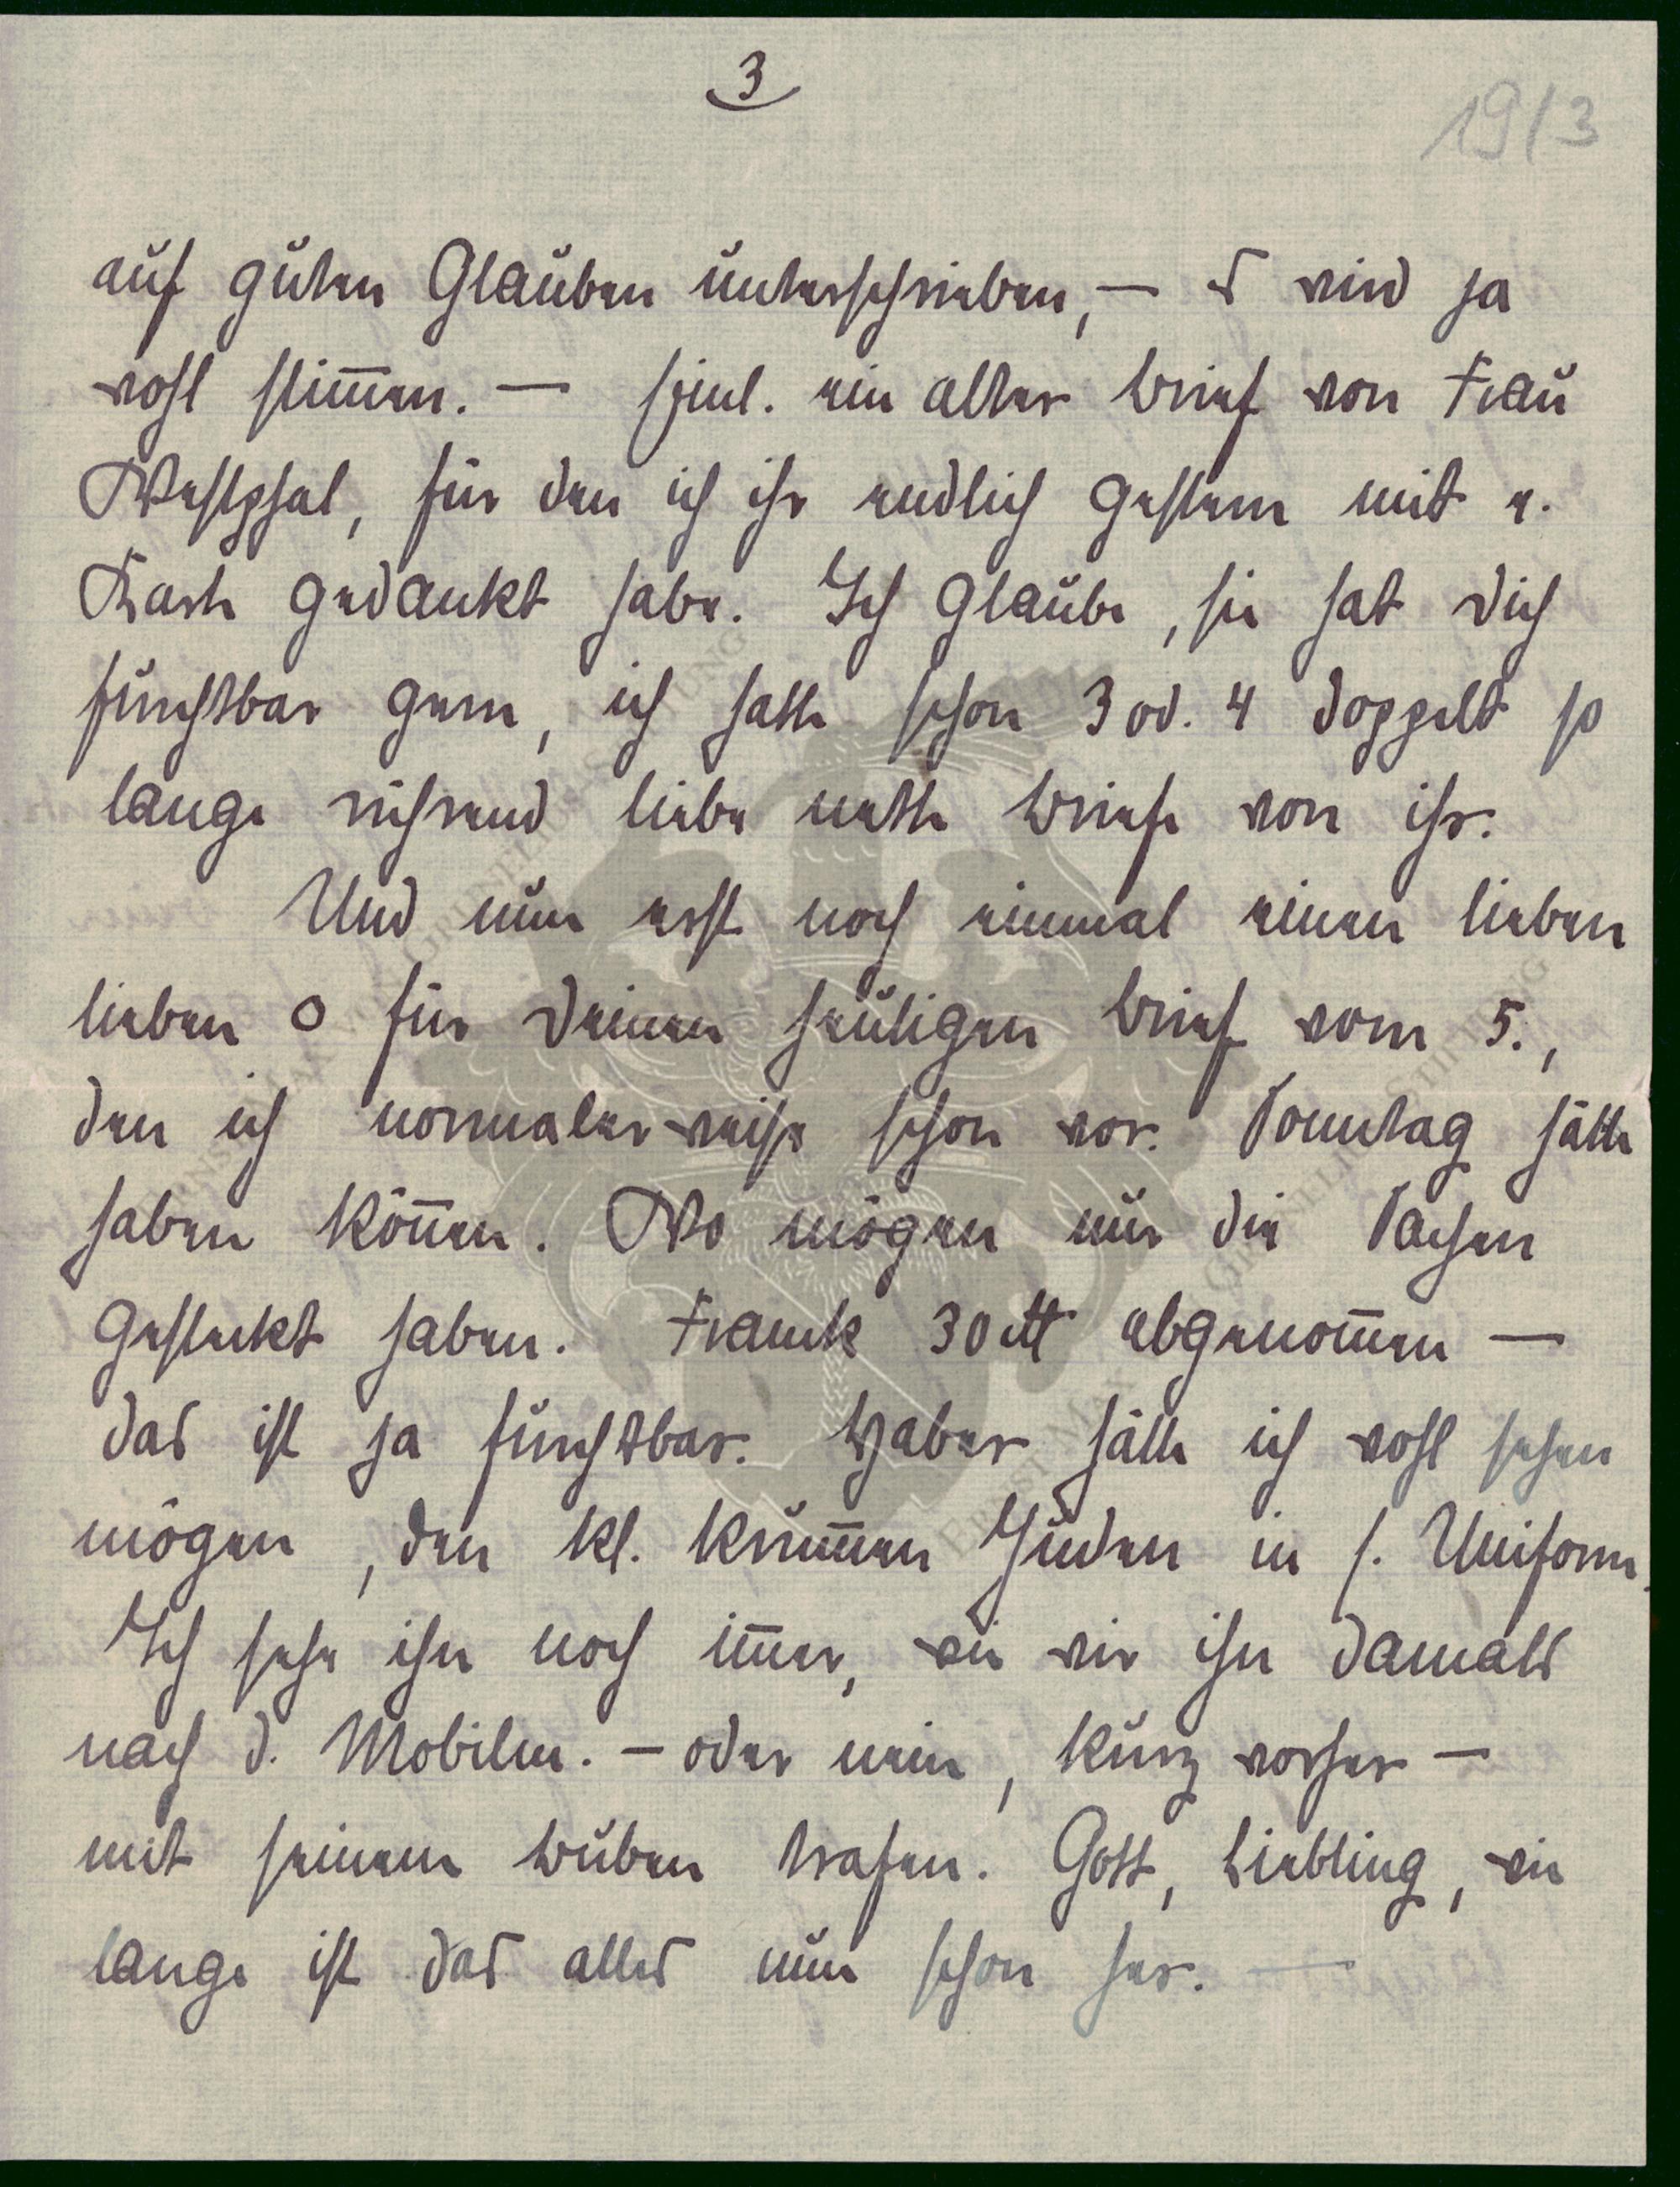 3
19/3
auf guten Glauben unterschrieben, — s wird ja
wohl stim̅en. — Heinl. ein alter Brief von Frau
Westphal, für den ich ihr endlich gestern mit e.
Karte gedankt habe. Ich glaube, sie hat Dich
furchtbar gern, ich hatte schon 3 od. 4 doppelt so
lange rührend liebe nette Briefe von ihr.
Und nun erst noch einmal einen lieben
lieben o für Deinen heutigen Brief vom 5.,
den ich normalerweise schon vor. Sonntag hätte
haben kön̅en. Wo mögen nur die Sachen
gesteckt haben. Franck 30 ℳ abgenom̅en —
das ist ja furchtbar. Haber hätte ich wohl sehen
mögen, den kl. krum̅en Juden in s. Uniform.
Ich sehe ihn noch im̅er, wie wir ihn damals
nach d. Mobilm. — oder nein, kurz vorher —
mit seinem Buben trafen. Gott, Liebling, wie
lange ist das alles nun schon her. —